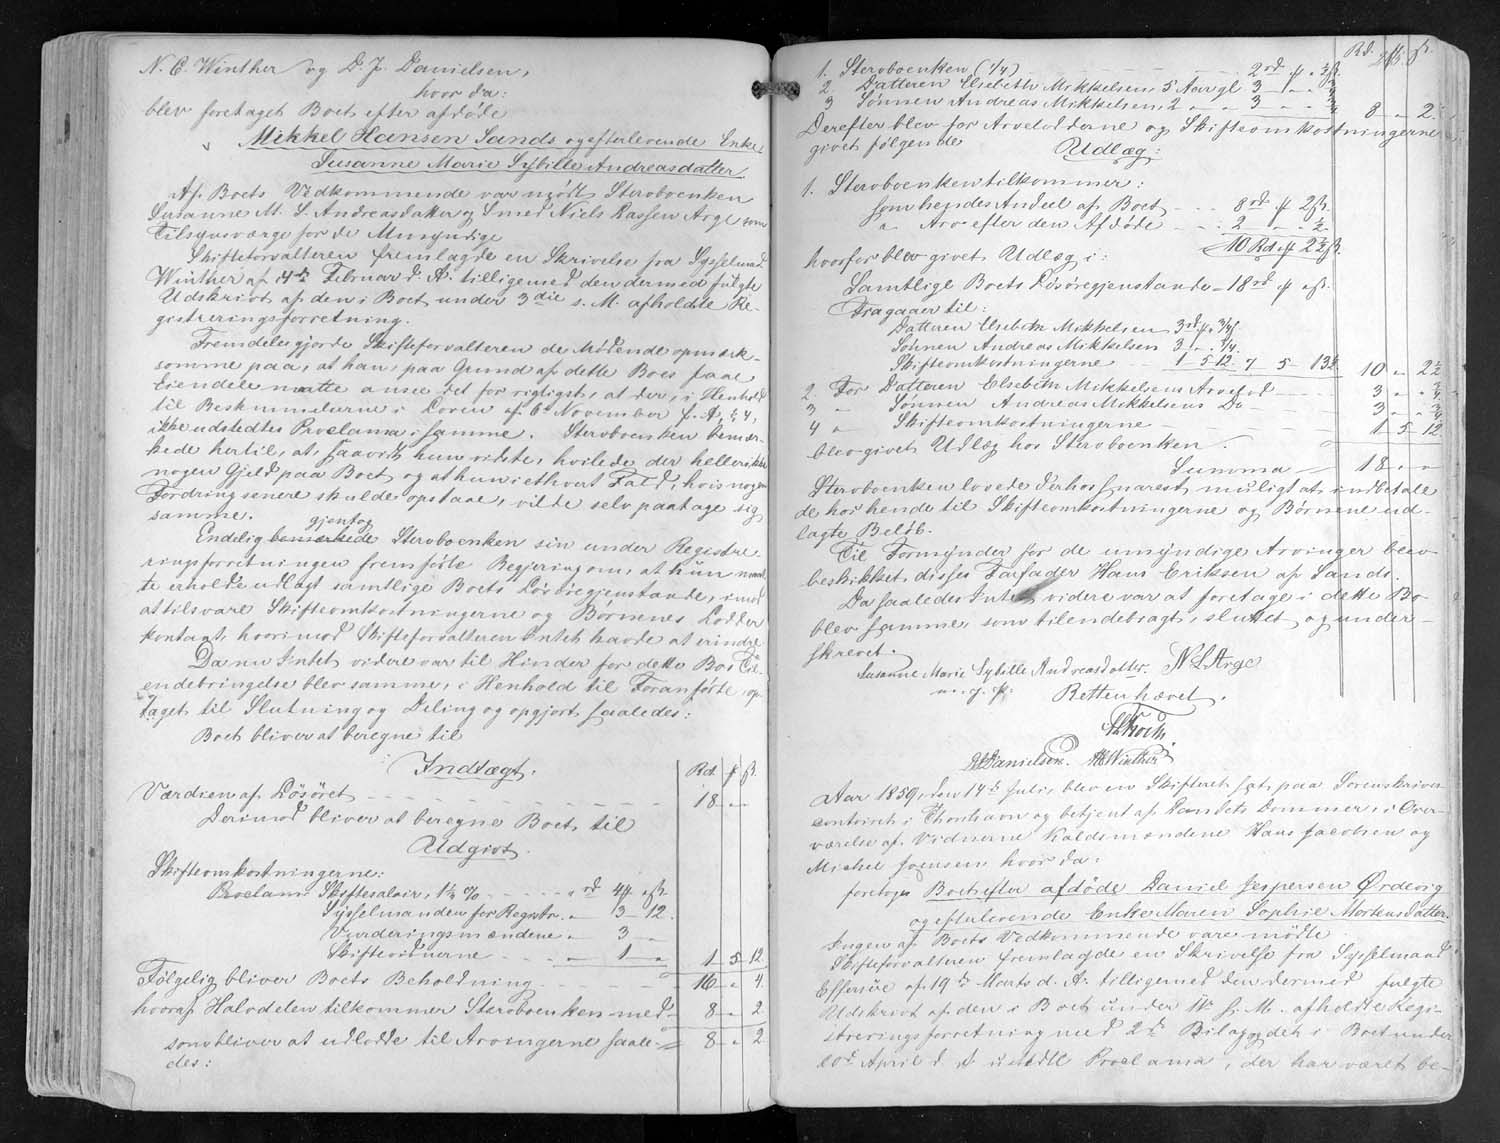 N. C. Winther og D. J. Danielsen,
hvor da:
blev foretaget Boet efter afdøde
Mikkel Hansen Sands og efterlevende Enke
Susanne Marie Sybille Andreasdatter.
Af Boets Vedkommende var mødt Sterboenken
Susanne M. S. Andreasdatter og Smed Niels Lassen Arge som
Tilsynsværge for de Umyndige
Skifteforvalteren fremlagde en Skrivelse fra Sysselmand
Winther af 4de Februar d. A. tilligemed den dermed fulgte
Udskrivt af den i Boet under 3die s. M. afholdte Re-
gistreringsforretning.
Fremdeles gjorde Skifteforvalteren de Mødende opmærk-
somme paa, at han, paa Grund af dette Boes faae
Eiendele maatte anse det for rigtigst, at der, i Henhold
til Bestemmelserne i Loven af 6te November f. A. § 4,
ikke udstedtes Proclama i samme. Sterboenken bemær-
kede hertil, at, saavidt hun vidste, hvilede der heller ikke
nogen Gjeld paa Boet og at hun i ethvert Fald, hvis nogen
Fordring senere skulde opstaae, vilde selv paatage sig
samme.
gjentog
Endelig bemærkede Sterboenken sin under Registre-
ringsforretningen fremførte Begjering om, at hun maat-
te erholde udlagt samtlige Boets Løsøregjenstande, imod
at tilsvare Skifteomkostningerne og Børnenes Lodder
kontant, hvorimod Skifteforvalteren Intet havde at erindre
Da nu Intet videre var til Hinder for dette Boes Til-
endebringelse blev samme, i Henhold til Foranførte, op-
taget til Slutning og Deling og opgjort saaledes:
Boet bliver at beregne til
Indtægt. Rd. ₰ ß.
Værdien af Løsøret 18 " "
Derimod bliver at beregne Boet til
Udgivt.
Skifteomkostningerne:
Proclam. Skiftesalair, 1⅓ % " rd 4 ₰ " ß.
Sysselmanden for Registr. " 3 - 12.
Vurderingsmændene " 3 - "
Skiftevidnerne " 1 - " 1 5 12
Følgelig bliver Boets Beholdning 16 " 4.
hvoraf Halvdelen tilkommer Sterboenken med 8 " 2
som bliver at udlodde til Arvingerne saale- 8 " 2
des:
Rd. ₰ ß.
1. Sterboenken (1/4) 2 rd ₰ " ½ ß.
2. Datteren Elsebeth Mikkelsen, 5 Aar gl. 3 - " "
3 Sønnen Andreas Mikkelsen, 2 " " 3 - " " 8 " 2.
Derefter blev for Arvelodderne og Skifteomkostningerne
givet følgende Udlæg:
1. Sterboenken tilkommer:
som hendes Andeel af Boet 8 rd ₰ 2 ß.
" Arv efter den Afdøde 2 " " ½
10 Rd. ₰ 2½ ß.
hvorfor blev givet Udlæg i:
Samtlige Boets Løsøregjenstande 18 rd ₰ " ß.
Fragaaer til:
Datteren Elsebeth Mikkelsen 3 rd ₰ " ¾ ß
Sønnen Andreas Mikkelsen 3 " " ¾.
Skifteomkostningerne 1 5 12 7 5 13½ 10 " 2½
2. For Datteren Elsebeth Mikkelsens Arvelod 3 " ¾
3 " Sønnen Andreas Mikkelsens Do 3 " ¾
4 " Skifteomkostningerne 1 5 12
blev givet Udlæg hos Sterboenken.
Summa 18 " "
Sterboenken lovede derhos snarest muligt at indbetale
de hos hende til Skifteomkostningerne og Børnene ud-
lagte Beløb.
Til Formynder for de umyndige Arvinger blev
beskikket disses Farfader Hans Eriksen af Sands.
Da saaledes Intet videre var at foretage i dette Bo
blev samme, som tilendebragt, sluttet og under-
skrevet.
Susanne Marie Sybille Andreasdatter. N. L. Arge
m. f. P.
Retten hævet.
HTroth
DDanielsen. NCWinther
Aar 1859, den 14de Juli, blev en Skifteret sat paa Sorenskriver-
contoiret i Thorshavn og betjent af Landets Dommer, i Over-
værelse af Vidnerne Kaldsmændene Hans Jacobsen og
Michel Joensen hvor da:
foretoges Boet efter afdøde Daniel Jespersen Ørdevig
og efterlevende Enke Maren Sophie Mortensdatter.
Ingen af Boets Vedkommende vare mødte.
Skifteforvalteren fremlagde en Skrivelse fra Sysselmand
Effersøe af 19de Marts d. A. tilligemed den dermed fulgte
Udskrivt af den i Boet under 11te s. M. afholdte Regi-
streringsforretning med 2de Bilag og det i Boet under
20de April d. A. udstedte Proclama, der har været be-